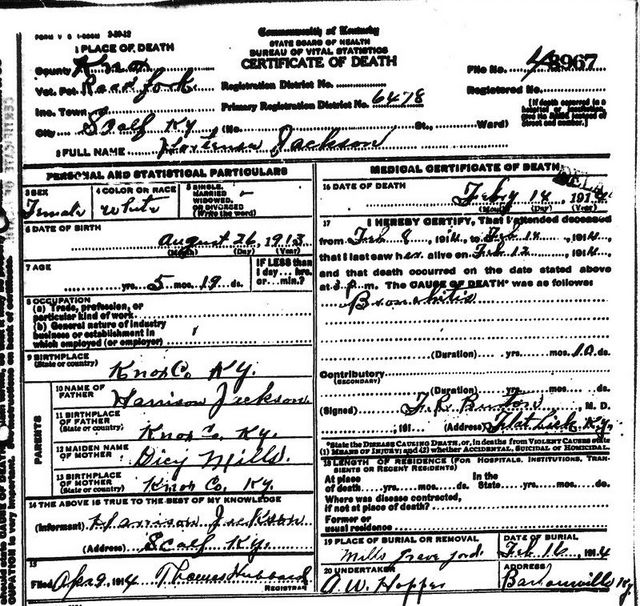 FORM V S 1-500M 3-29-12
Commonwealth of Kentucky
STATE BOARD OF HEALTH
BUREAU OF VITAL STATISTICS
CERTIFICATE OF DEATH
1 PLACE OF DEATH
County Knox
Vot. Pct. Road fork
Inc. Town
City Scalf Ky (No. St., Ward)
File No. 8967
Registration District No.
Primary Registration District No. 6478
Registered No.
[If death occurred in a hospital or institution, give its NAME instead of street and number.]
2 FULL NAME Hortensa Jackson
PERSONAL AND STATISTICAL PARTICULARS
3 SEX
Female
4 COLOR OR RACE
White
5 SINGLE, MARRIED WIDOWED, OR DIVORCED (Write the word)
6 DATE OF BIRTH
August 26, 1913
(Month) (Day) (Year)
7 AGE
yrs. 5 mos. 19 ds.
IF LESS than 1 day... hrs. or... min.?
8 OCCUPATION
(a) Trade, profession, or particular kind of work
(b) General nature of industry business or establishment in which employed (or employer)
9 BIRTHPLACE
(State or country)
Knox Co. Ky.
PARENTS
10 NAME OF FATHER
Harrison Jackson
11 BIRTHPLACE OF FATHER
(State or country)
Knox Co, Ky.
12 MAIDEN NAME OF MOTHER
Dicy Mills
13 BIRTHPLACE OF MOTHER
(State or country)
Knox Co, Ky.
14 THE ABOVE IS TRUE TO THE BEST OF MY KNOWLEDGE
(Informant) Harrison Jackson
(Address) Scalf Ky.
15
Filed Apr 9, 1914 Thomas Hubbard
REGISTRAR
MEDICAL CERTIFICATE OF DEATH
16 DATE OF DEATH
Feby 14, 1914
(Month) (Day) (Year)
17 I HEREBY CERTIFY, That I attended deceased
from Feb 8, 1914, to Feb 12, 1914,
that I last saw her alive on Feb 12, 1914,
and that death occurred on the date stated above
at m. The CAUSE OF DEATH* was as follows
Bronchitis
(Duration) yrs. mos. 10 ds.
Contributory
(SECONDARY)
(Duration) yrs. mos. ds.
(Signed) F. R. Burton, M. D.
, 191 (Address) Flat Lick, Ky.
*State the DISEASE CAUSING DEATH, or, in deaths from VIOLENT CAUSES state (1) MEANS OF INJURY; and (2) whether ACCIDENTAL, SUICIDAL or HOMICIDAL
18 LENGTH OF RESIDENCE (FOR HOSPITALS, INSTITUTIONS, TRANSIENTS OR RECENT RESIDENTS)
At place of death yrs. mos. ds. In the State yrs. mos. ds.
Where was disease contracted, if not at place of death?
Former or usual residence
19 PLACE OF BURIAL OR REMOVAL
Mills Grave Yard
DATE OF BURIAL
Feb 16, 1914
20 UNDERTAKER
A. W. Hopper
ADDRESS
Barbourville Ky.